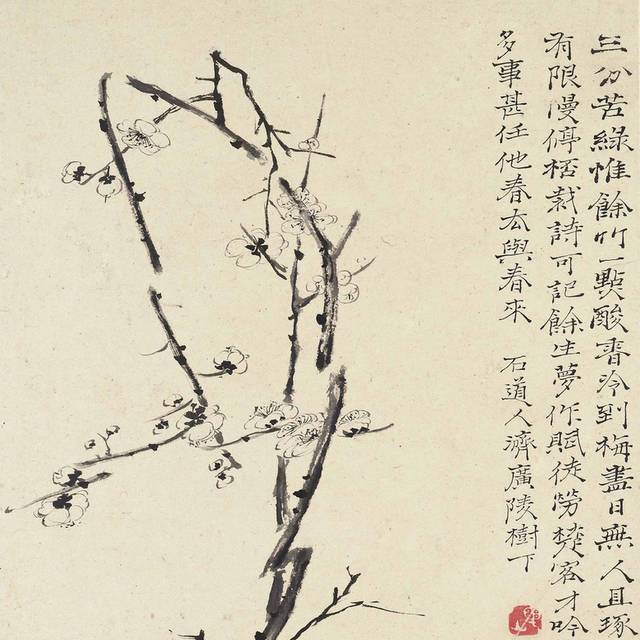 三分苦綠惟餘竹一點酸香冷到梅盡日無人且琢
有限漫停桮裁詩可記餘生夢作賦徒勞楚客才吟
多事甚任他春去與春來 石道人濟廣陵樹下